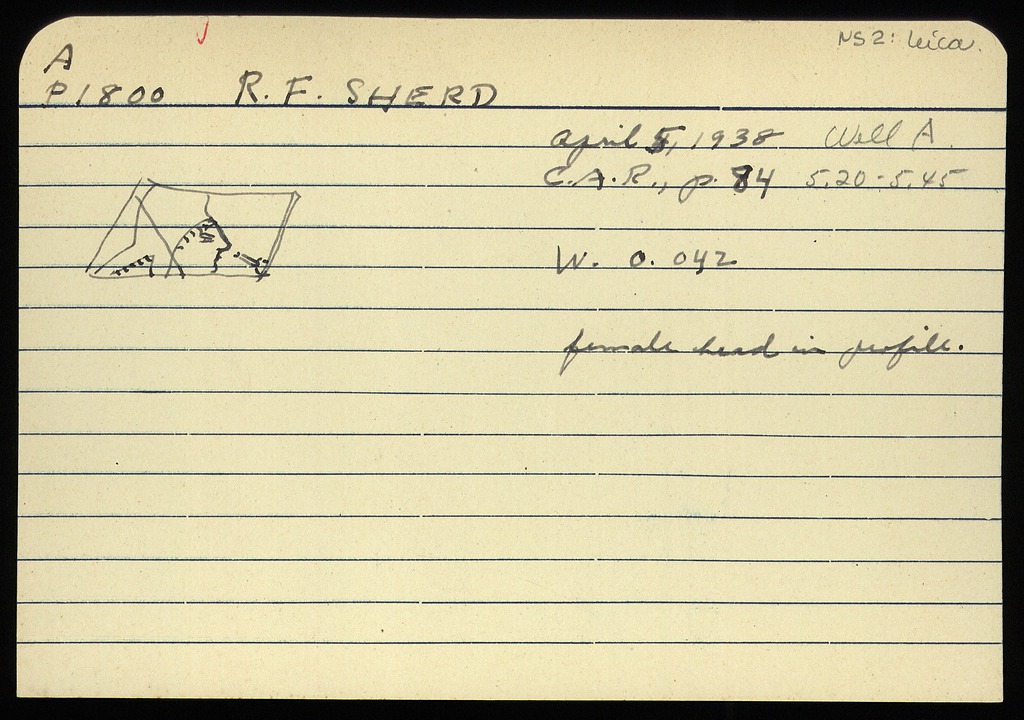 NS 2: Leica.
A
P 1800 R. F. SHERD
April 5, 1938 Well A.
C.A.R., p. 84 5.20-5.45
W. 0.042
female head in profile.